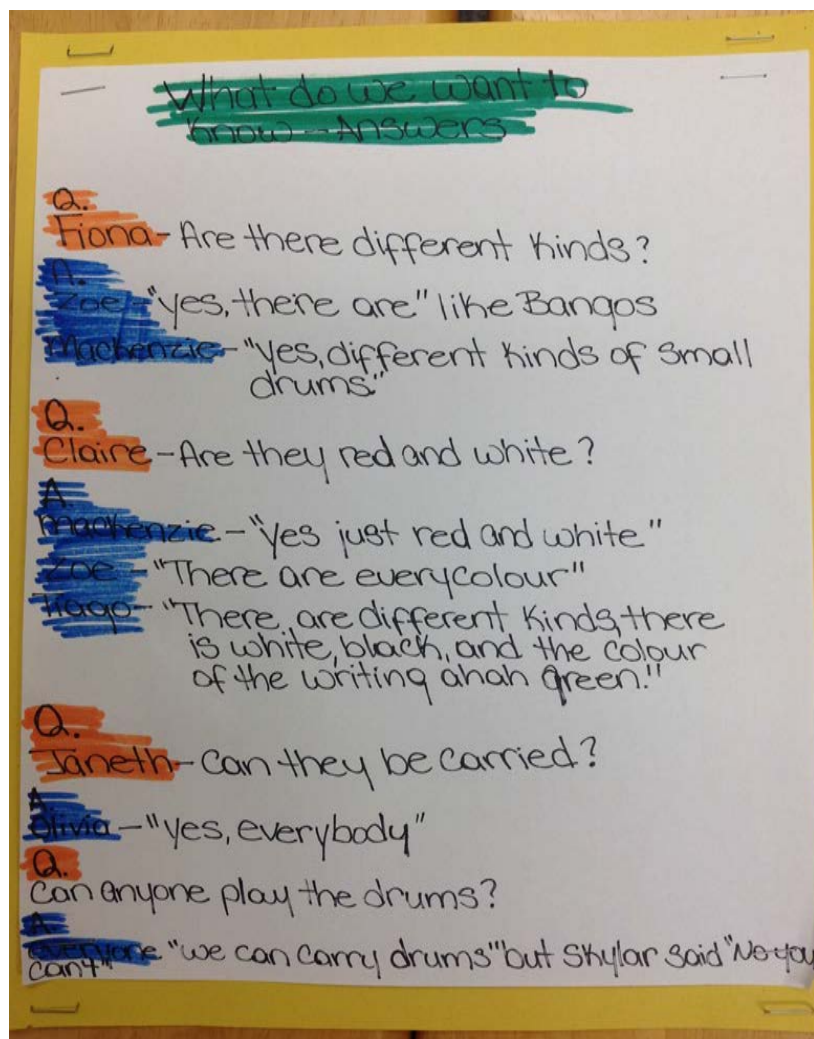 What do we want to
know - Answers
Q.
Fiona - Are there different kinds?
A.
Zoe - "yes, there are" like Bangos
Mackenzie - "yes, different kinds of small
drums."
Q.
Claire - Are they red and white?
A.
Mackenzie - "yes just red and white"
Zoe - "There are everycolour"
Tiago - "There are different kinds, there
is white, black, and the colour
of the writing ahah green."
Q.
Janeth - Can they be carried?
A.
Olivia - "yes, everybody"
Q.
Can anyone play the drums?
A.
everyone "we can carry drums" but Skylar said "No you
can't"